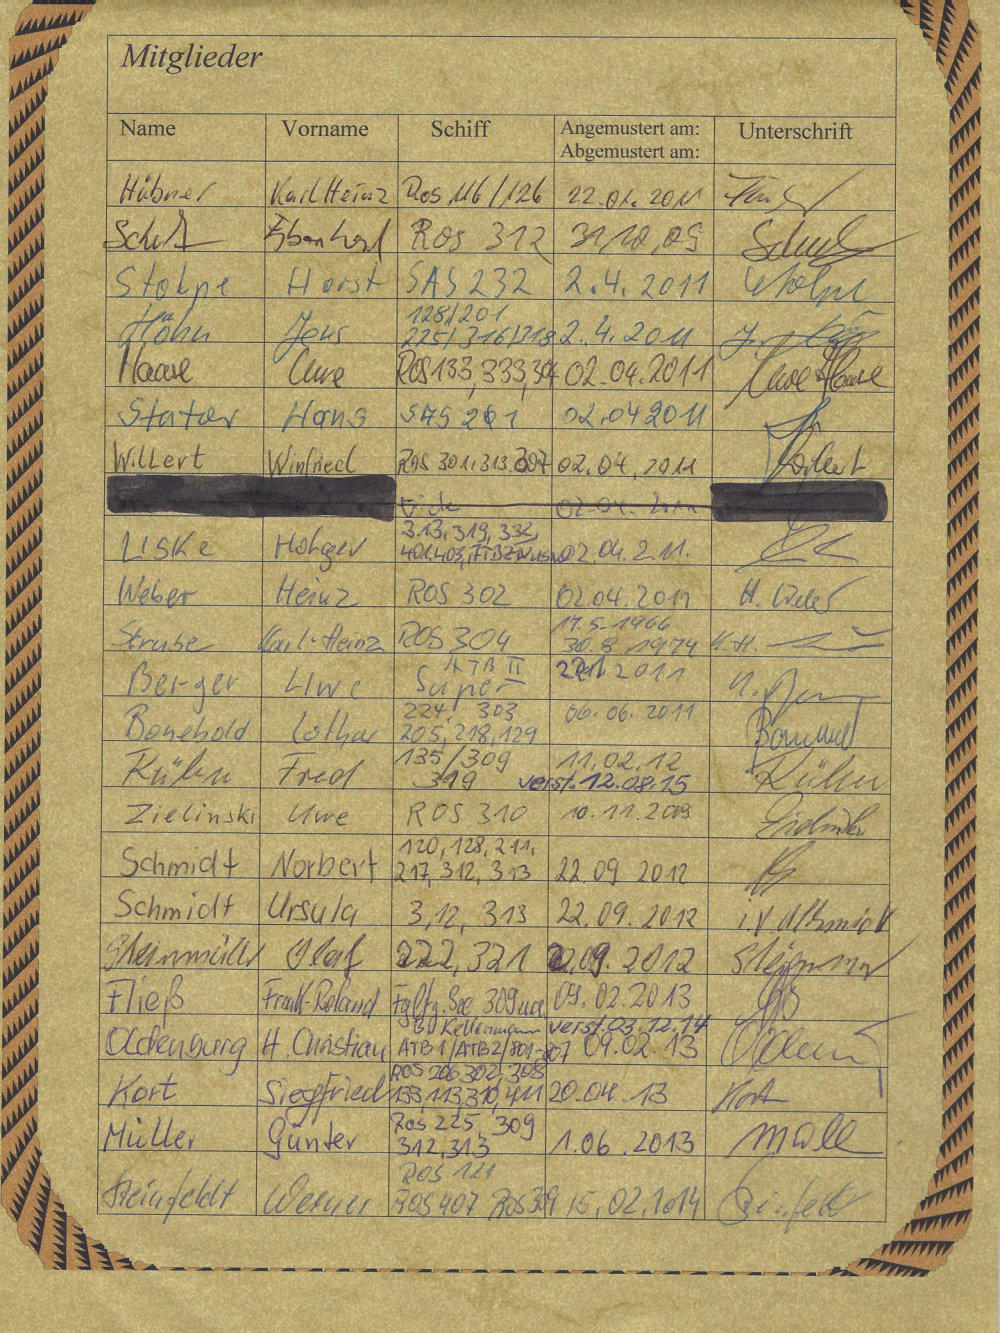 Mitglieder
Name Vorname Schiff Angemustert am: Unterschrift
Abgemustert am:
Hübner Karl Heinz Ros 116/126 22.01.2011
ROS 312 31.10.09
Stolpe Horst SAS 232 2.4.2011 Stolpe
128/201
Höhn Jens 225/316/318 2.4.2011
Haase Uwe ROS 133, 333, 02.04.2011 Uwe Haase
Stater Hans SAS 02.04 2011
Willert Winfried ROS 301, 313 307 02.04.2011 Willert
02.04. 2011
313, 319, 332,
Liske Holger 401.403, 02.04.2.11.
Weber Heinz ROS 302 02.04.2011 H. Weber
17.5.1966
Strube Karl-Heinz ROS 304 30.8.1974 K.H.
ATB II
Berger Uwe Super 2011
224, 303 06.06.2011
Bonehold Lothar 205, 218, 129
135/309 11.02.12
Kühn Fred 319 verst. 12.08.15 Kühn
Zielinski Uwe ROS 310 10.11.2009
120, 128, 211,
Schmidt Norbert 217, 312, 313 22.09 2012
Schmidt Ursula 3,12, 313 22.09. 2012 i.V Schmidt
Steinmüller Olaf 222, 321 22.09. 2012
Fließ Frank-Roland 309 09.02.2013
B. Kellermann verst. 03.12.14
Oldenburg H. Christian ATB1/ATB2/801-807 09.02.13
ROS 206, 302, 308
Kort Siegfried 133, 113, 310, 411 20.04.13 Kort
Ros 225, 309
Müller Günter 312, 313 1.06.2013
ROS 121
Steinfeldt Werner ROS 407 Ros 309 15.02.2014